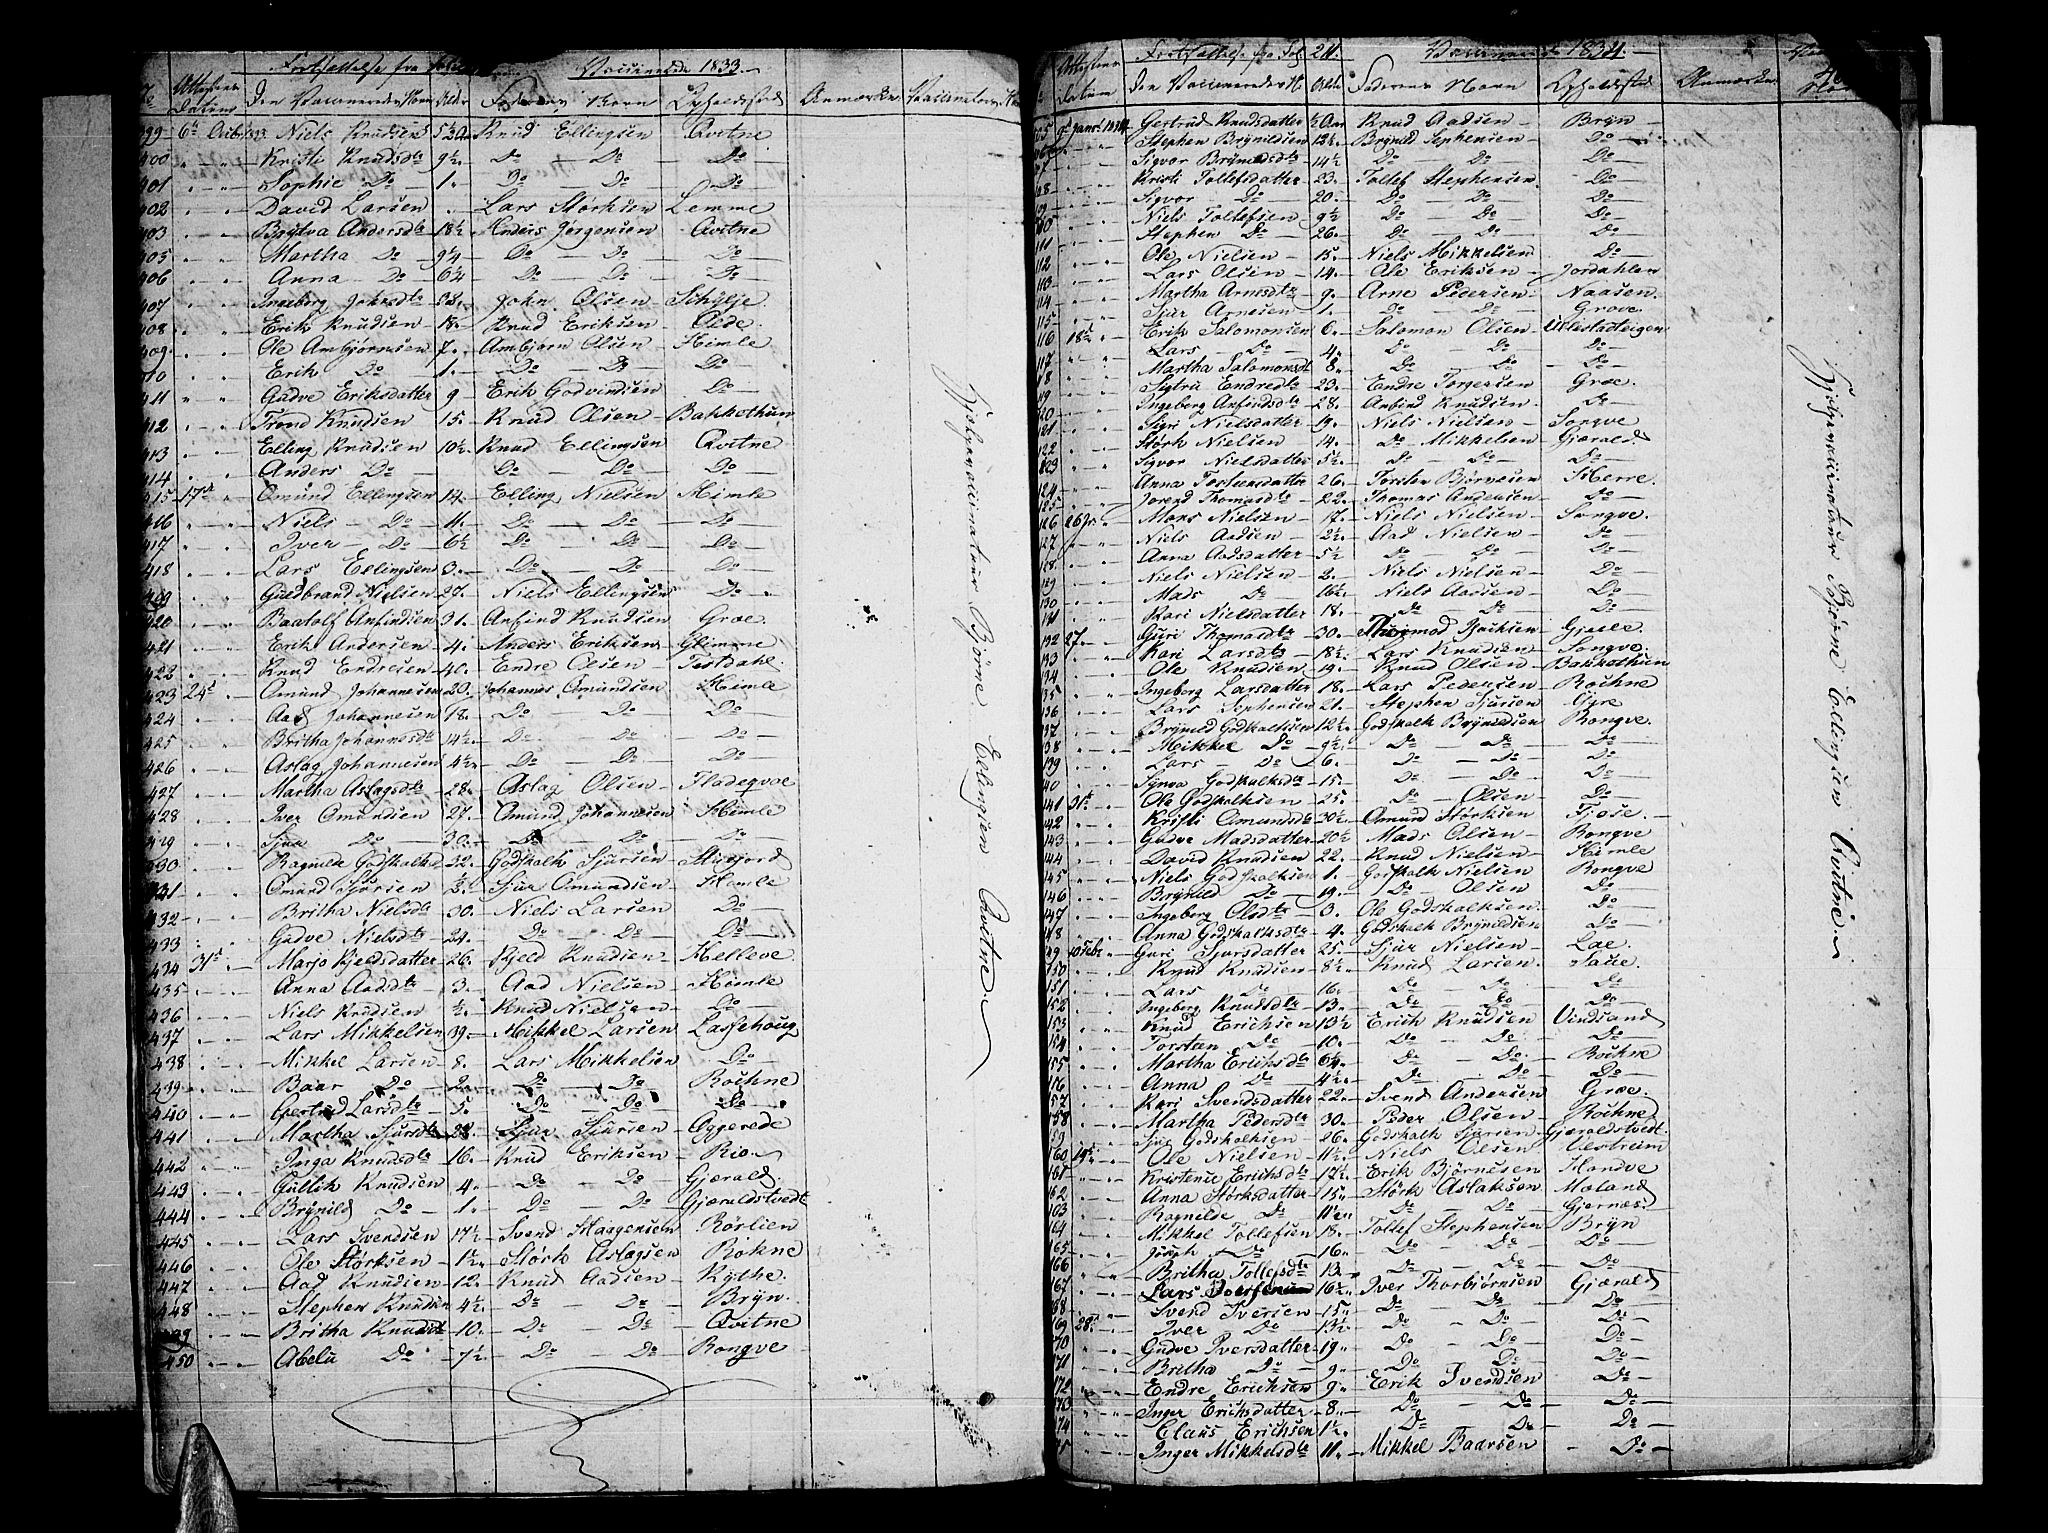 Fortsættelse fra Vaccinerede 1833.
Attestens Datum Den Vaccineredes Navn Alder Faderens Navn Opholdsted Anmærkn.
399 6te Niels Knudsen 5 Knud Ellingsen Qvitne
400 " " Kristi Knudsdtr 9½ Do Do Do
401 " " Sophie Do 1. Do Do Do
402 " " David Larsen Lars Størksen Lemme
403 " " Anders Jørgensen Qvitne
405 " " Martha Do 9¼ Do Do Do
406 " " Anna Do 6¼ Do Do Do
407 " " Ingeborg Johnsdtr John Olsen Schylje
408 " " Erik Knudsen 18. Knud Eriksen Olde
409 " " Ole Ambjørnsen 7. Ambjørn Olsen Himle
410 " " Erik Do 1. Do Do Do
411 " " Gudve Eriksdatter 9 Erik Godvindsen Do
412 " " Trond Knudsen 15. Knud Olsen Bakkethun
413 " " Elling Knudsen 10½ Knud Ellingsen Qvitne
414 " " Anders Do Do Do Do
415 17de " Omund Ellingsen 14. Elling Nielsen Himle
416 " " Niels Do 11. Do Do Do
417 " " Iver Do 6½ Do Do Do
418 " " Lars Ellingsen 3. Do Do Do
419 " " Guldbrand Nielsen 27. Niels Ellingsen Do
420 " " Baatolf Anfindsen 31. Anfind Knudsen Groe
421 " " Erik Andersen 4. Anders Eriksen Glimme
422 " " Knud Endresen 40. Endre Olsen Tistdahl
423 24de Omund Johannesen 20. Johannes Omundsen Himle
424 " " Aad Johannesen 18. Do Do Do
425 " " Britha Johannesdtr 14½ Do Do Do
426 " " Aslag Johannesen 4½ Do Do Do
427 " " Martha Aslagsdtr 28. Aslag Olsen Fladeqvoe
428 " " Iver Omundsen 27. Omund Johannesen Himle
429 " " Sjur Do 30. Do Do Do
430 " " Ragnilda Godskalksd 32. Godskalk Sjursen
431 " " Omund Sjursen ½ Sjur Omundsen Himle
432 " " Britha Nielsdtr 30. Niels Larsen Do
433 " " Gudve Nielsdtr 24. Do Do Do
434 31te Marjo Kjeldsdatter 26. Kjeld Knudsen Helleve
435 " " Anna Aadsdtr 3. Aad Nielsen Himle
436 " " Niels Knudsen ½ Knud Nielsen Do
437 " " Lars Mikkelsen 39. Mikkel Larsen Lassehoug
438 " " Mikkel Larsen 8. Lars Mikkelsen Do
439 " " Baar Do 2. Do Do Rochne
440 " " Gertrud Larsdtr 5. Do Do Do
441 " " Martha Sjursdtr 28. Sjur Sjursen Qggerede
442 " " Inga Knudsdtr 16. Knud Eriksen Rio
443 " " Gullik Knudsen 4. Do Do Gjerald
444 " " Brynild Do 1. Do Do Gjeraldstvedt
445 " " Lars Svendsen 17½ Svend Haagensen Rørlien
446 " " Ole Størksen 1½ Størk Aslagsen Rokne
447 " " Aad Knudsen 12. Knud Aadsen Rythe
448 " " Stephen Knudsen 4½ Do Do Bryn
449 " " Britha Knudsdtr 10. Do Do Qvitne
450 " " Abelu Do 7½ Do Do Rongve
Hjelpevaccinateur Bjørne Ellingsen Qvitne.
Fortsættelse fra Fol 24. Vaccinerede 1834.
Datum Den Vaccineredes N Alder Faderens Navn Opholdsted Anmærkn.
105 9de Janr. 1834 Gertrud Knudsdatter ½ Aar Knud Aadsen Bryn
" " Stephen Brynildsen 12½ Brynild Stephensen Do
" " Sigvor Brynildsdtr 14½ Do Do Do
108 " " Kristi Tollefsdatter 23. Tollef Stephensen Do
109 " " Sigvor Do 20. Do Do Do
110 " " Niels Tollefsen 9½ Do Do Do
" " Stephen Do 26. Do Do Do
111 " " Ole Nielsen 15. Niels Mikkelsen Do
112 " " Lars Olsen 14. Ole Eriksen Jordahlen
113 " " Martha Arnesdtr 9. Arne Pedersen Naasen
114 " " Sjur Arnesen 1. Do Do Grove
115 18de " Erik Salomonsen 6. Salomon Olsen Ullestadteigen
116 " " Lars Do 4. Do Do Do
117 " " Martha Salomonsdt 8. Do Do Do
118 " " Sigtru Endredtr 23. Endre Torgersen Groe
119 " " Ingeborg Anfindsdtr 28. Anfind Knudsen Do
120 " " Sigri Nielsdatter 19. Niels Nielsen Songve
121 " " Størk Nielsen 14. Do Mikkelsen Gjerald
122 " " Sigvor Nielsdatter 5½ Do Do Do
123 " " Anna Torstensdatter 26. Torsten Bjørnesen Herre
124 " " Jorend Thomasdtr 22. Thomas Andersen Do
126 26de " Mons Nielsen 17. Niels Nielsen Songve
127 " " Niels Aadsen 2½ Aad Nielsen Do
128 " " Anna Aadsdatter 5½ Do Do Do
129 " " Niels Nielsen 2. Niels Nielsen Do
130 " " Mads Do 16½ Niels Aadsen Do
131 " " Kari Nielsdatter 18. Do Do Do
132 27. Guri Thomasdtr 30. Gjuke
133 " " Kari Larsdtr 18½ Lars Knudsen Songve
134 " " Ole Knudsen 19. Knud Olsen Bakkethun
135 " " Ingeborg Larsdatter 18. Lars Pedersen Rochne
136 " " Lars Stephensen 21. Stephen Sjursen Gyre
137 " " Brynild Godskalksen 12½ Godskalk Brynildsen Rongve
138 " " Mikkel Do 9½ Do Do Do
139 " " Lars Do 6. Do Do Do
140 " " Synva Godskalksdtr 15. Do Do Do
141 31te Ole Godskalksen 25. Do Olsen Do
142 " " Kristi Omundsdtr 30½ Omund Størksen Fjose
143 " " Gudve Madsdatter 20½ Mads Olsen Rongve
144 " " David Knudsen 22. Knud Nielsen Himle
145 " " Niels Godskalksen 1. Godskalk Nielsen Rongve
146 " " Brynild Do 19. Do Olsen Do
147 " " Ingeborg Olsdtr 3. Ole Godskalksen Do
148 " " Anna Godskalksdtr 4. Godskalk Brynildsen Do
149 10 Febr Guri Sjursdatter 25. Sjur Nielsen Lae
150 " " Knud Knudsen 8½ Knud Larsen Saue
151 " " Lars Do 16. Do Do Do
152 " " Ingeborg Knudsdtr 13. Do Do Do
153 " " Knud Erichsen 13½ Erich Knudsen Vindsand
154 " " Torsten Do 10. Do Do Do
155 " " Martha Erichsdtr 6¼ Do Do Rochne
156 " " Anna Do 4½ Do Do Do
157 " " Kari Svendsdatter 22. Svend Andersen Groe
158 " " Martha Pedersdtr 30. Peder Olsen Rochne
159 " " Sjur Godskalksen 26. Godskalk Sjursen Gjeraldstvedt
160 19de " Ole Nielsen 11½ Niels Olsen Uestreim
161 " " Kristense Erichsdtr 17½ Erik Bjørnesen Mandve
162 " " Anna Størksdatter 15. Størk Aslaksen Moland
163 " " Ragnilde Do 11½ Do Do Gjernæs
164 " " Mikkel Tollefsen 18. Tollef Stephensen Bryn
165 " " Joseph Do 16. Do Do Do
166 " " Britha Tollefsdtr 13. Do Do Do
167 " " Lars Iversen 16½ Iver Thorbjørnsen Gjerald
168 " " Svend Iversen 15. Do Do Do
169 28de Iver Do 13½ Do Do Do
170 " " Gudve Iversdatter 19. Do Do Do
171 " " Britha Do 9. Do Do Do
172 " " Endre Erichsen 9. Erik Svendsen Do
173 " " Inger Erichsdatter 8. Do Do Do
174 " " Claus Erichsen 1½ Do Do Do
175 " " Inger Mikkelsdtr 11. Mikkel Baarsen Do
Hjelpevaccinateur Bjørne Ellingsen Qvitne